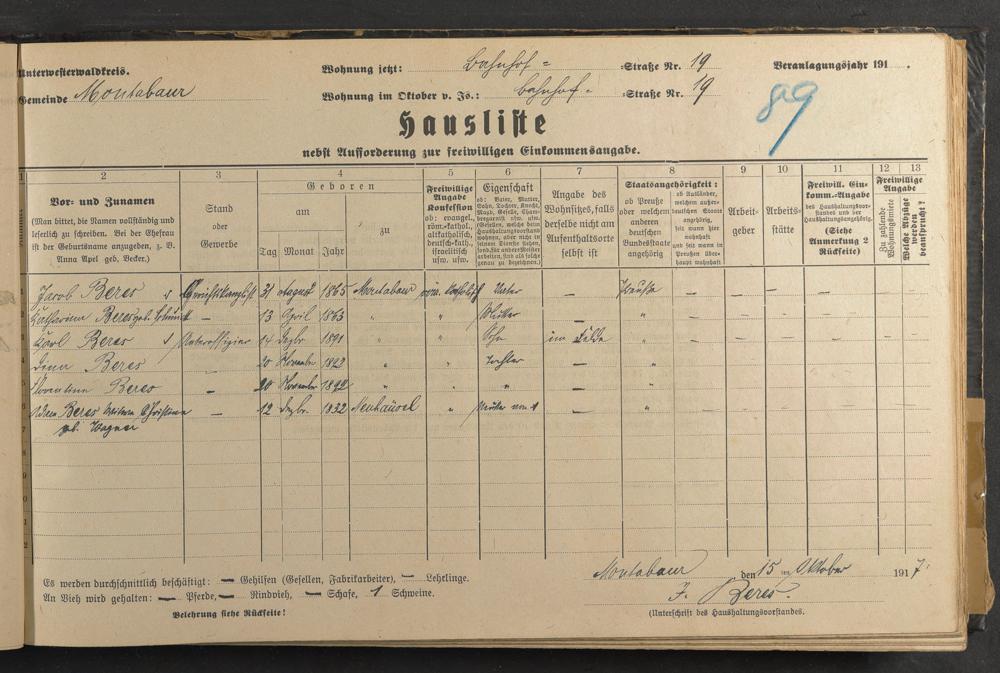 Unterwesterwaldkreis.
Wohnung jetzt: Bahnhof- =Straße Nr. 19
Veranlagungsjahr 191 .
Gemeinde Montabaur
Wohnung im Oktober v. Js.: Bahnhof- =Straße Nr. 19
89
Hausliste
nebst Aufforderung zur freiwilligen Einkommensangabe.
2 3 4 5 6 7 8 9 10 11 12 13
Vor- und Zunamen
(Man bittet, die Namen vollständig und leserlich zu schreiben. Bei der Ehefrau ist der Geburtsname anzugeben, z. B. Anna Apel geb. Becker.)
Stand oder Gewerbe
Geboren
am
zu
Tag Monat Jahr
Freiwillige Angabe Konfession
ob: evangel., röm.-kathol., altkatholisch, deutsch-kath., israelitisch usw. usw.
Eigenschaft
Angabe des Wohnsitzes, falls derselbe nicht am Aufenthaltsorte selbst ist
Staatsangehörigkeit:
ob Preuße oder welchem anderen deutschen Bundesstaate angehörig
ob Ausländer, welchem außerdeutschen Staate angehörig, seit wann hier wohnhaft und seit wann in Preußen überhaupt wohnhaft
Arbeitgeber
Arbeitsstätte
Freiwill. Einkomm.-Angabe
des Haushaltungsvorstandes und der Haushaltungsangehörig.
(Siehe Anmerkung 2 Rückseite)
Freiwillige Angabe
Zu zahlende Wohnungsmiete
Welche Abzüge werden beansprucht?
Jacob Beres 31 August 1865 Montabaur Vater — Preuße — — — — —
Katharina Beres geb. Schmidt — 13 April 1863 " " Mutter — " — — — — —
Karl Beres Unteroffizier 14 Dezbr 1891 " " Sohn im Felde " — — — — —
Beres — 20 November 1892 " " Tochter — "
Beres — 20 November 1892 " " " — "
Beres Witwe Christine — 12 Dezbr. 1832 Neuhäusel " Mutter von 1 — " — — — — —
geb. Wagner
Es werden durchschnittlich beschäftigt: — Gehilfen (Gesellen, Fabrikarbeiter), — Lehrlinge.
An Vieh wird gehalten: — Pferde, — Rindvieh, — Schafe, 1 Schweine.
Belehrung siehe Rückseite!
Montabaur den 15 ten Oktober 1917.
J. Beres.
(Unterschrift des Haushaltungsvorstandes.